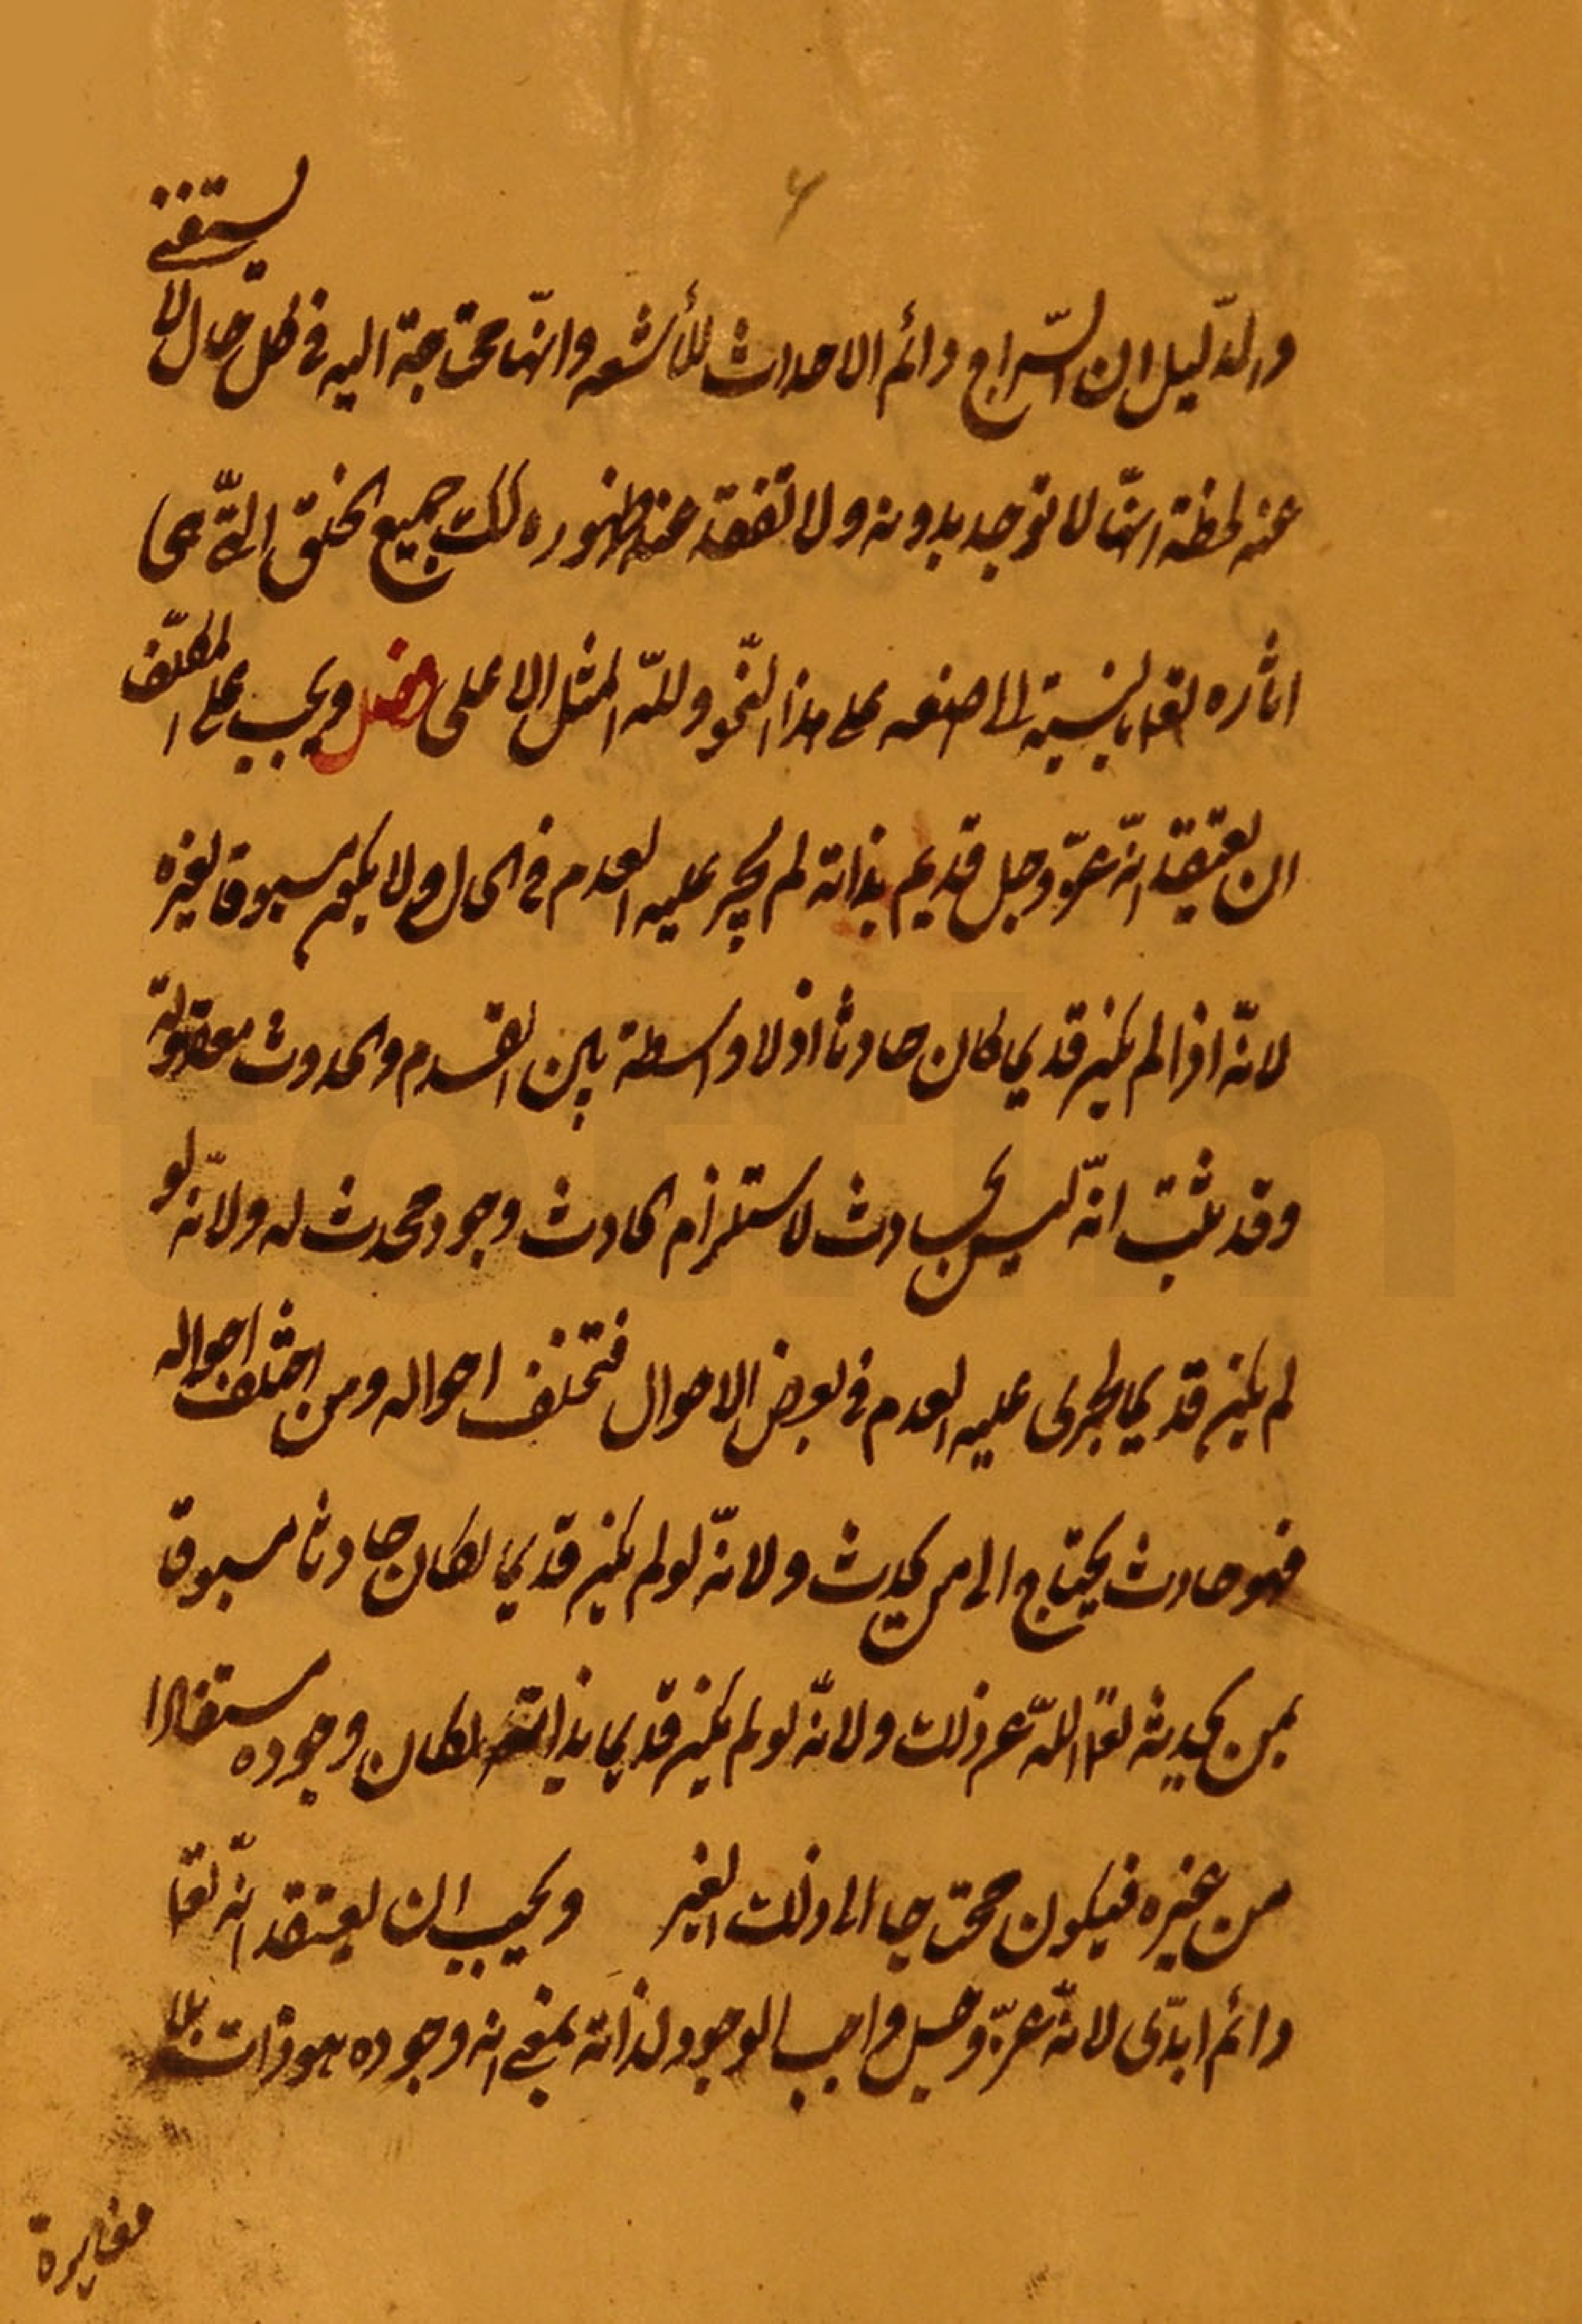 ۶
والدّليل ان السّراج دائم الاحداث للأشعه وانّها محتاجة اليه فى كل حال لا تستغنى
عنه لحظة انّها لا توجد بدونه ولا تفقد عند ظهوره كك جميع الخلق الّتى هى
اثاره تعا بالنسبة الى صنعه على هذا النّحو وللّه المثل الاعلى فصل ويجب على المكلّف
ان يعتقد انّه عزّ وجل قديم بذاته لم يجر عليه العدم فى حال ولا يكون مسبوقا بغيره
لانّه اذا لم يكن قديما كان حادثا اذ لا واسطة بين القدم والحدوث معقولة
وقد ثبت انّه ليس بحادث لاستلزام الحادث وجود محدث له ولانّه لو
لم يكن قديما لجرى عليه العدم فى بعض الاحوال فتختلف احواله ومن اختلف احواله
فهو حادث يحتاج الى من يحدثه ولانّه لو لم يكن قديما لكان حادثا مسبوقا
بمن يحدثه تعا اللّه عن ذلك ولانّه لو لم يكن قديما بذاته لكان وجوده مستفادا
من غيره فيكون محتاجا الى ذلك الغير ويجب ان يعتقد انّه تعا
دائم ابدّى لانّه عزّ وجل واجب الوجود لذاته بمعنى انه وجوده هو ذاته بلا
مغايرة